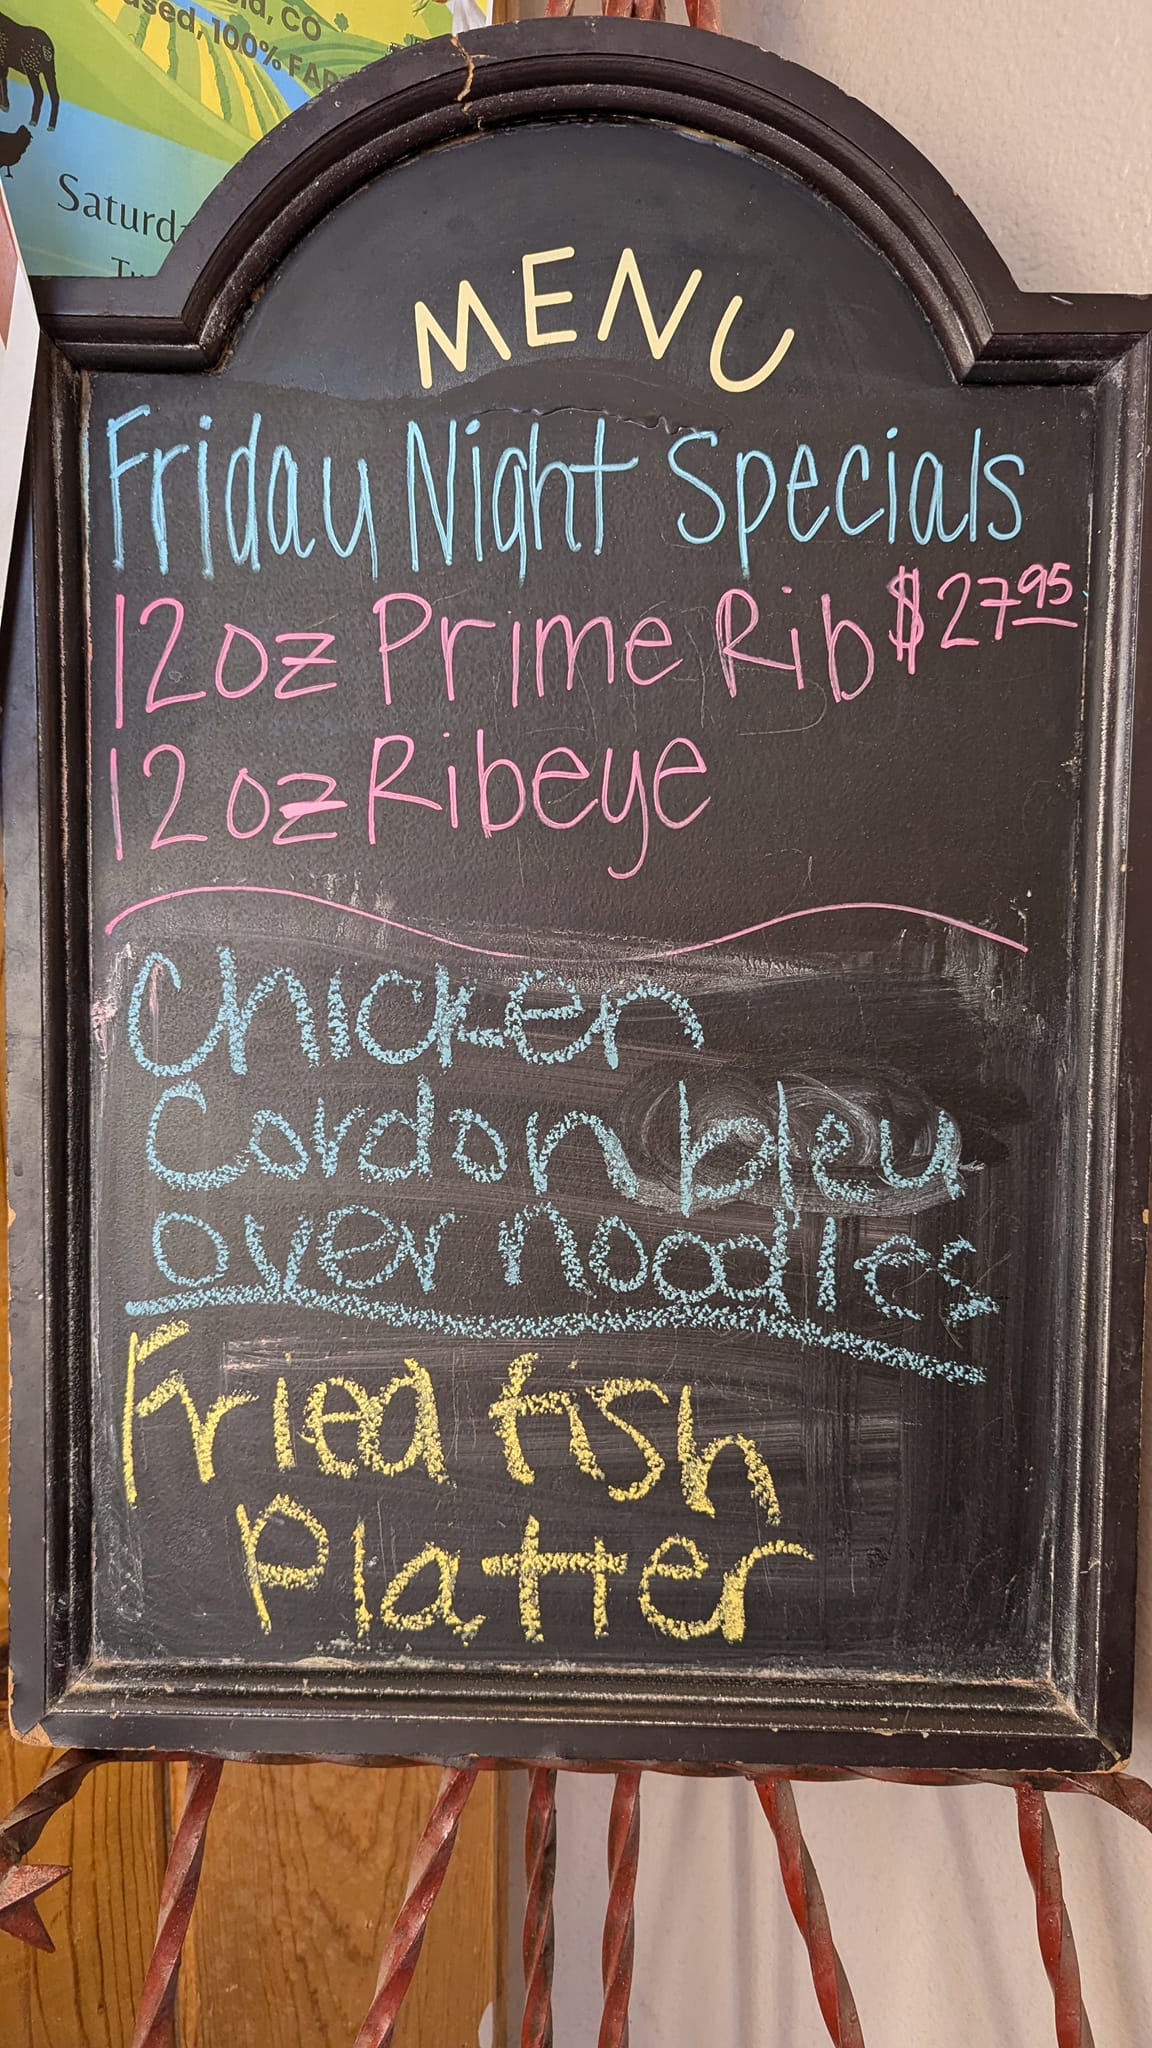 ld, CO
ased, 100% FAR
Saturda
Tu
MENU
Friday Night Specials
12oz Prime Rib $27.95
12oz Ribeye
Chicken
Cordon bleu
over noodles
Fried fish
Platter